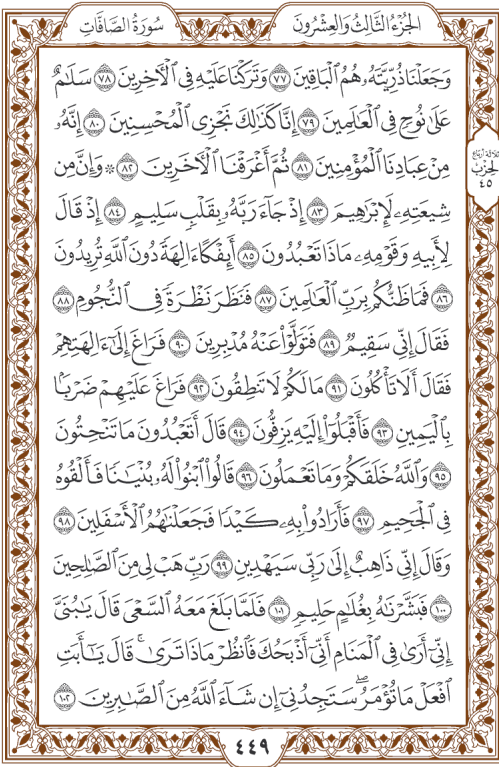 سُورَةُ الصَّافَّاتِ
الجُزْءُ الثَّالِثُ وَالعِشْرُونَ
وَجَعَلْنَا ذُرِّيَّتَهُۥ هُمُ ٱلْبَاقِينَ ٧٧ وَتَرَكْنَا عَلَيْهِ فِى ٱلْأَخِرِينَ ٧٨ سَلَٰمٌ
عَلَىٰ نُوحٍ فِى ٱلْعَٰلَمِينَ ٧٩ إِنَّا كَذَٰلِكَ نَجْزِى ٱلْمُحْسِنِينَ ٨٠ إِنَّهُۥ
مِنْ عِبَادِنَا ٱلْمُؤْمِنِينَ ٨١ ثُمَّ أَغْرَقْنَا ٱلْأَخَرِينَ ٨٢ ۞ وَإِنَّ مِن
شِيعَتِهِۦ لَإِبْرَٰهِيمَ ٨٣ إِذْ جَآءَ رَبَّهُۥ بِقَلْبٍ سَلِيمٍ ٨٤ إِذْ قَالَ
لِأَبِيهِ وَقَوْمِهِۦ مَاذَا تَعْبُدُونَ ٨٥ أَئِفْكًا ءَالِهَةً دُونَ ٱللَّهِ تُرِيدُونَ
٨٦ فَمَا ظَنُّكُم بِرَبِّ ٱلْعَٰلَمِينَ ٨٧ فَنَظَرَ نَظْرَةً فِى ٱلنُّجُومِ ٨٨
فَقَالَ إِنِّى سَقِيمٌ ٨٩ فَتَوَلَّوْا۟ عَنْهُ مُدْبِرِينَ ٩٠ فَرَاغَ إِلَىٰٓ ءَالِهَتِهِمْ
فَقَالَ أَلَا تَأْكُلُونَ ٩١ مَا لَكُمْ لَا تَنطِقُونَ ٩٢ فَرَاغَ عَلَيْهِمْ ضَرْبًۢا
بِٱلْيَمِينِ ٩٣ فَأَقْبَلُوٓا۟ إِلَيْهِ يَزِفُّونَ ٩٤ قَالَ أَتَعْبُدُونَ مَا تَنْحِتُونَ
٩٥ وَٱللَّهُ خَلَقَكُمْ وَمَا تَعْمَلُونَ ٩٦ قَالُوا۟ ٱبْنُوا۟ لَهُۥ بُنْيَٰنًا فَأَلْقُوهُ
فِى ٱلْجَحِيمِ ٩٧ فَأَرَادُوا۟ بِهِۦ كَيْدًا فَجَعَلْنَٰهُمُ ٱلْأَسْفَلِينَ ٩٨
وَقَالَ إِنِّى ذَاهِبٌ إِلَىٰ رَبِّى سَيَهْدِينِ ٩٩ رَبِّ هَبْ لِى مِنَ ٱلصَّٰلِحِينَ
١٠٠ فَبَشَّرْنَٰهُ بِغُلَٰمٍ حَلِيمٍ ١٠١ فَلَمَّا بَلَغَ مَعَهُ ٱلسَّعْىَ قَالَ يَٰبُنَىَّ
إِنِّىٓ أَرَىٰ فِى ٱلْمَنَامِ أَنِّىٓ أَذْبَحُكَ فَٱنظُرْ مَاذَا تَرَىٰ ۚ قَالَ يَٰٓأَبَتِ
ٱفْعَلْ مَا تُؤْمَرُ ۖ سَتَجِدُنِىٓ إِن شَآءَ ٱللَّهُ مِنَ ٱلصَّٰبِرِينَ ١٠٢
ثلاثة أرباع
الحزب
٤٥
٤٤٩